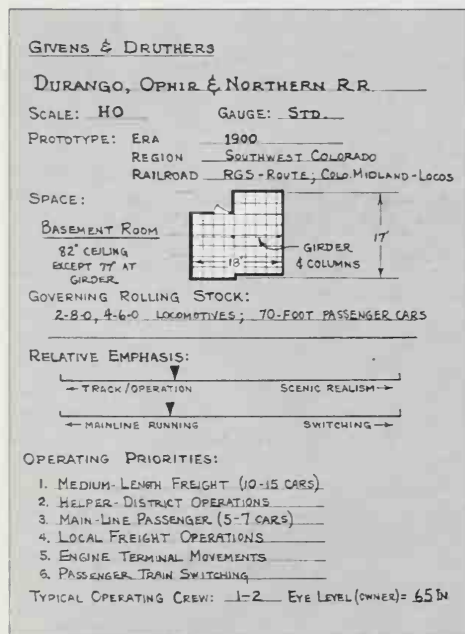 GIVENS & DRUTHERS
DURANGO, OPHIR & NORTHERN R.R.
SCALE: HO GAUGE: STD
PROTOTYPE: ERA 1900
REGION SOUTHWEST COLORADO
RAILROAD RGS-ROUTE; COLO. MIDLAND-LOCOS
SPACE:
BASEMENT ROOM
82" CEILING
EXCEPT 77" AT
GIRDER
18'
GIRDER
& COLUMNS
17'
GOVERNING ROLLING STOCK:
2-8-0, 4-6-0 LOCOMOTIVES; 70-FOOT PASSENGER CARS
RELATIVE EMPHASIS:
← TRACK/OPERATION SCENIC REALISM →
← MAINLINE RUNNING SWITCHING →
OPERATING PRIORITIES:
1. MEDIUM-LENGTH FREIGHT (10-15 CARS)
2. HELPER-DISTRICT OPERATIONS
3. MAIN-LINE PASSENGER (5-7 CARS)
4. LOCAL FREIGHT OPERATIONS
5. ENGINE TERMINAL MOVEMENTS
6. PASSENGER TRAIN SWITCHING
TYPICAL OPERATING CREW: 1-2 EYE LEVEL (OWNER) = 65 IN